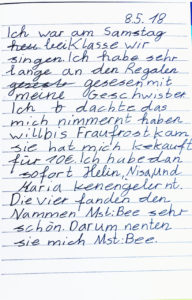 8.5.18
Ich war am Samstag
bei Klasse wir
singen. Ich habe sehr
lange an den Regalen
gesesen mit
meine Geschwister
Ich dachte das
mich nimmernt haben
will bis Frau frost kam
sie hat mich gekauft
für 10€. Ich habe dan
sofort Helin, Nisa und
Maria kenengelernt.
Die vier fanden den
Nammen Mst: Bee sehr
schön. Darum nenten
sie mich Mst: Bee.